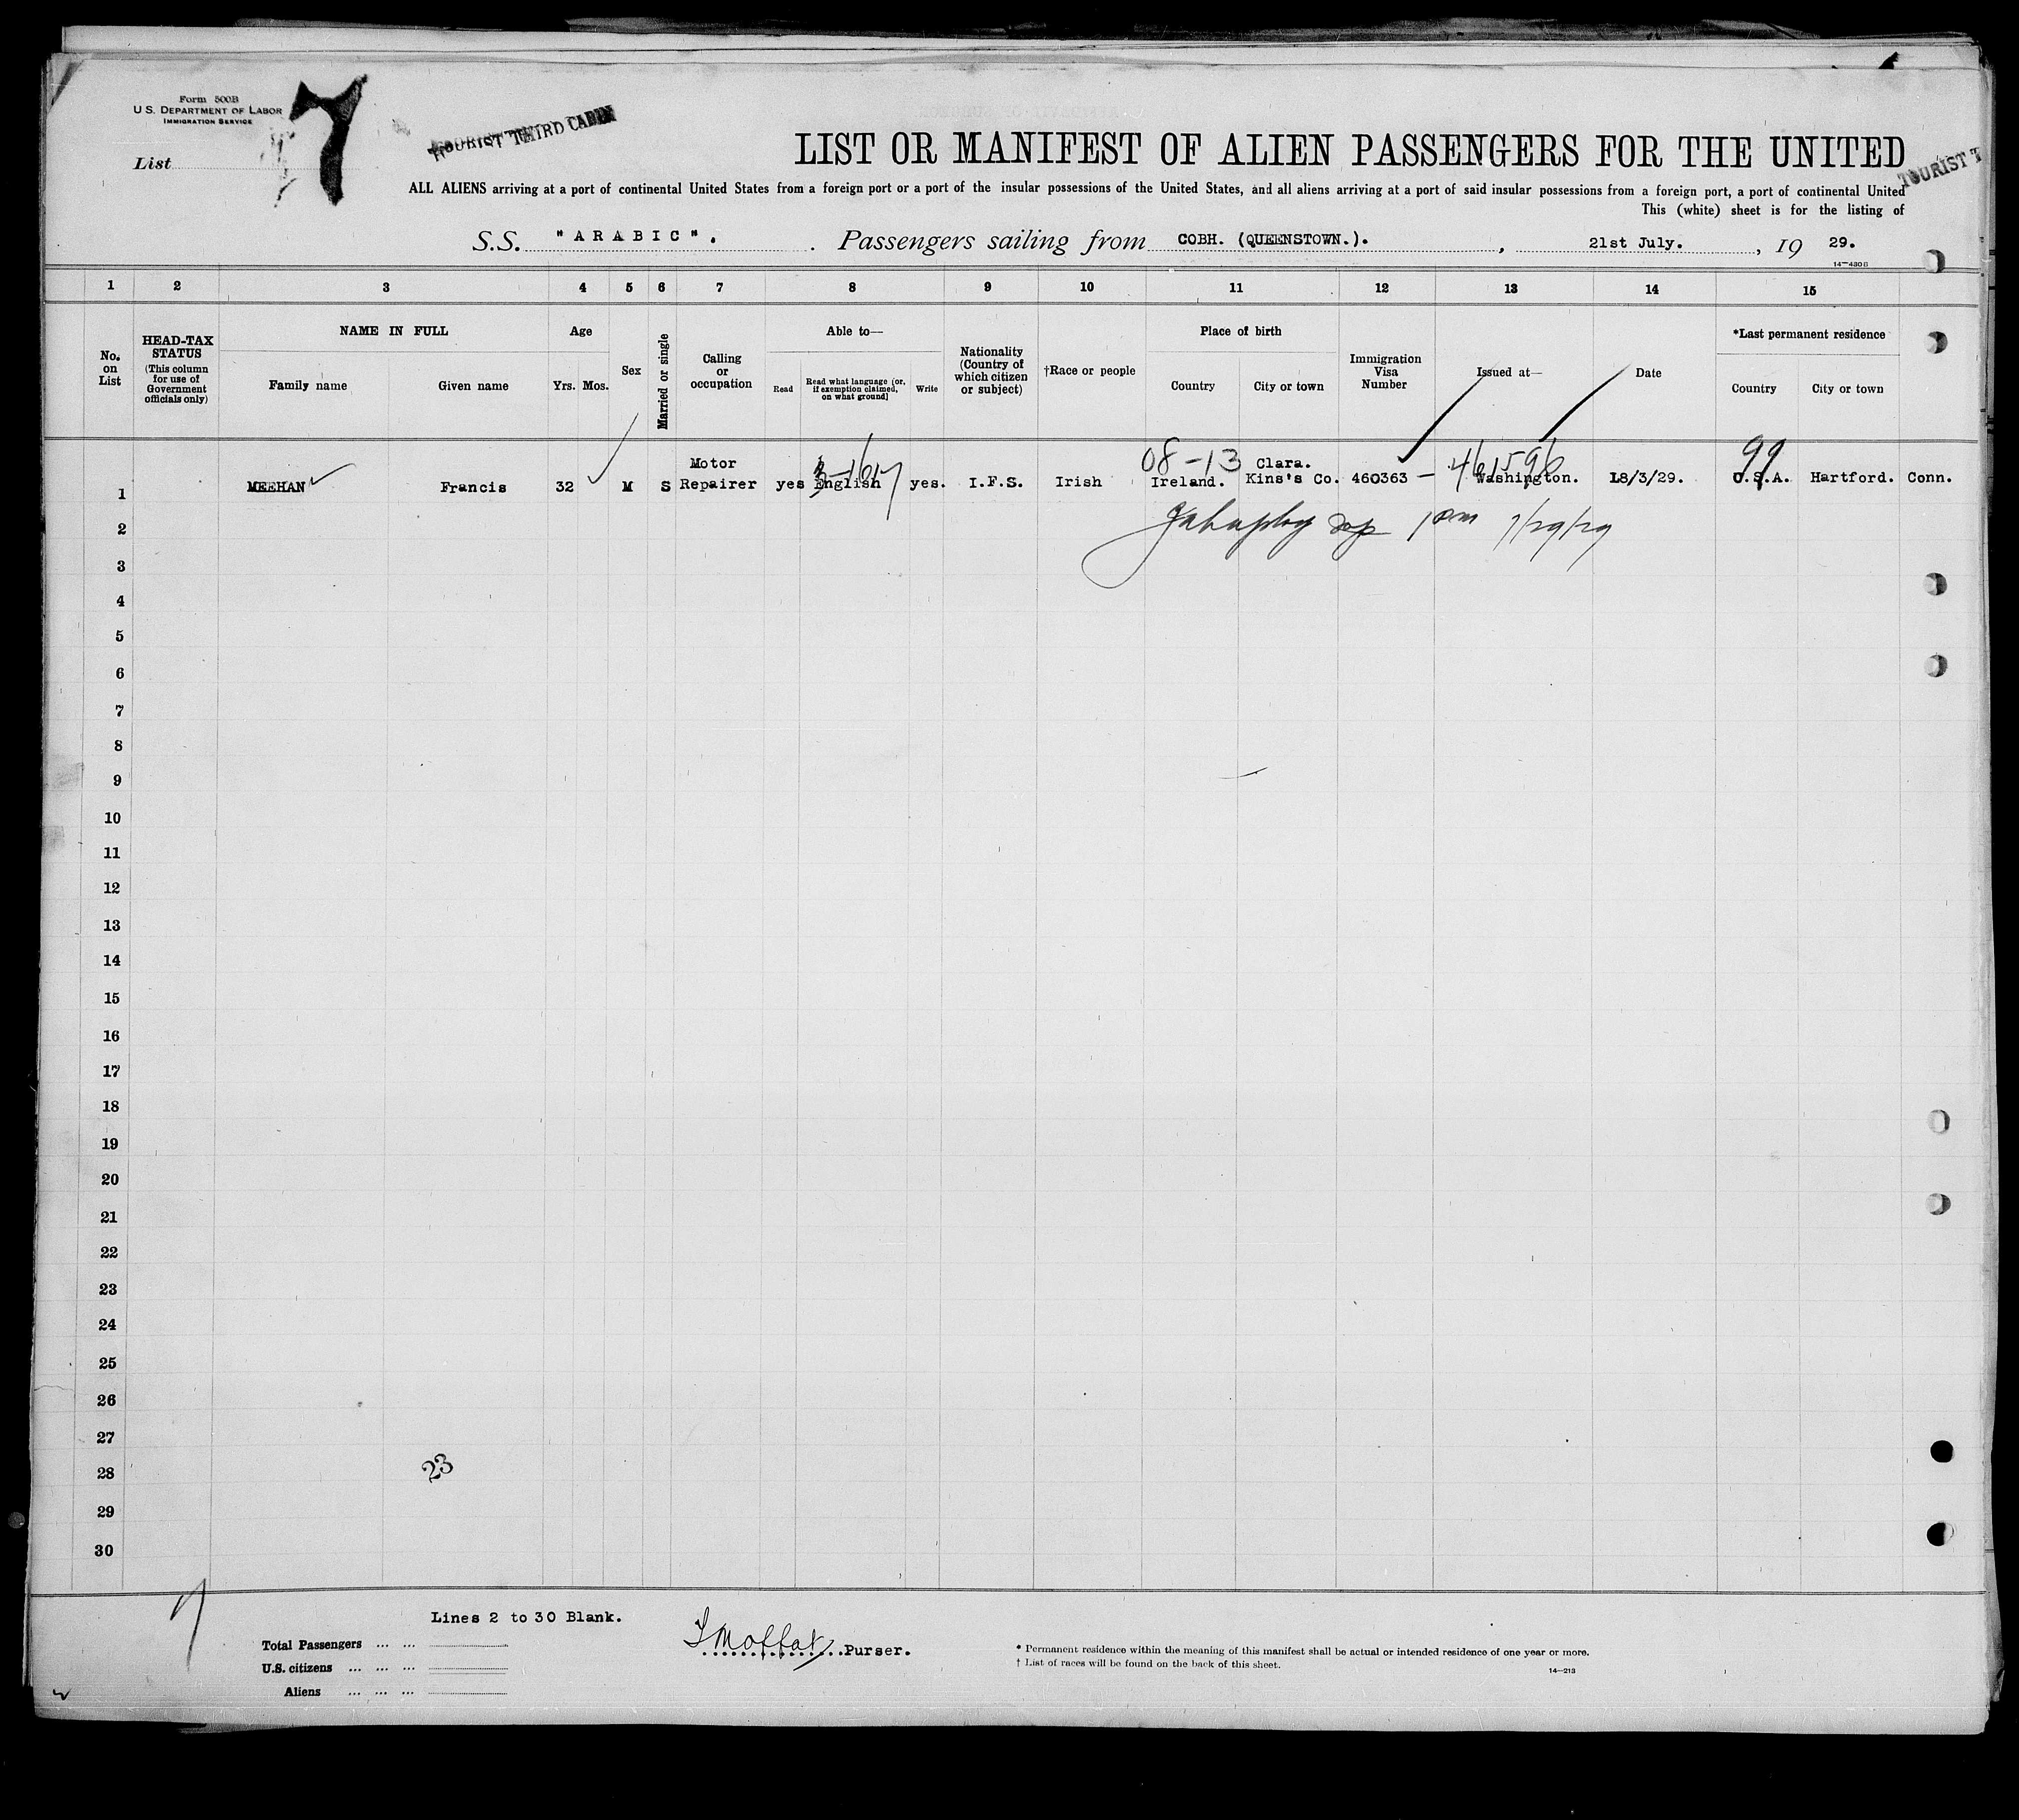 Form 500B
U.S. DEPARTMENT OF LABOR
IMMIGRATION SERVICE
List 7
TOURIST THIRD CABIN
LIST OR MANIFEST OF ALIEN PASSENGERS FOR THE UNITED
TOURIST T
ALL ALIENS arriving at a port of continental United States from a foreign port or a port of the insular possessions of the United States, and all aliens arriving at a port of said insular possessions from a foreign port, a port of continental United
This (white) sheet is for the listing of
S.S. "ARABIC". . Passengers sailing from COBH. (QUEENSTOWN.). , 21st July. , 19 29.
14—430B
1 2 3 4 5 6 7 8 9 10 11 12 13 14 15
No. on List
HEAD-TAX STATUS (This column for use of Government officials only)
NAME IN FULL
Family name Given name
Age
Yrs. Mos.
Sex
Married or single
Calling or occupation
Able to—
Read Read what language [or, if exemption claimed, on what ground] Write
Nationality (Country of which citizen or subject)
†Race or people
Place of birth
Country City or town
Immigration Visa Number
Issued at—
Date
*Last permanent residence
Country City or town
08-13 461596 99
1 MEEHAN Francis 32 M S Motor Repairer yes English yes. I.F.S. Irish Ireland. Clara. Kins's Co. 460363 Washington. 18/3/29. U.S.A. Hartford. Conn.
2 7/29/29
3
4
5
6
7
8
9
10
11
12
13
14
15
16
17
18
19
20
21
22
23
24
25
26
27
28 23
29
30
7
Lines 2 to 30 Blank.
Total Passengers ... ...
U.S. citizens ... ... ...
Aliens ... ... ...
Moffat Purser.
* Permanent residence within the meaning of this manifest shall be actual or intended residence of one year or more.
† List of races will be found on the back of this sheet.
14—213